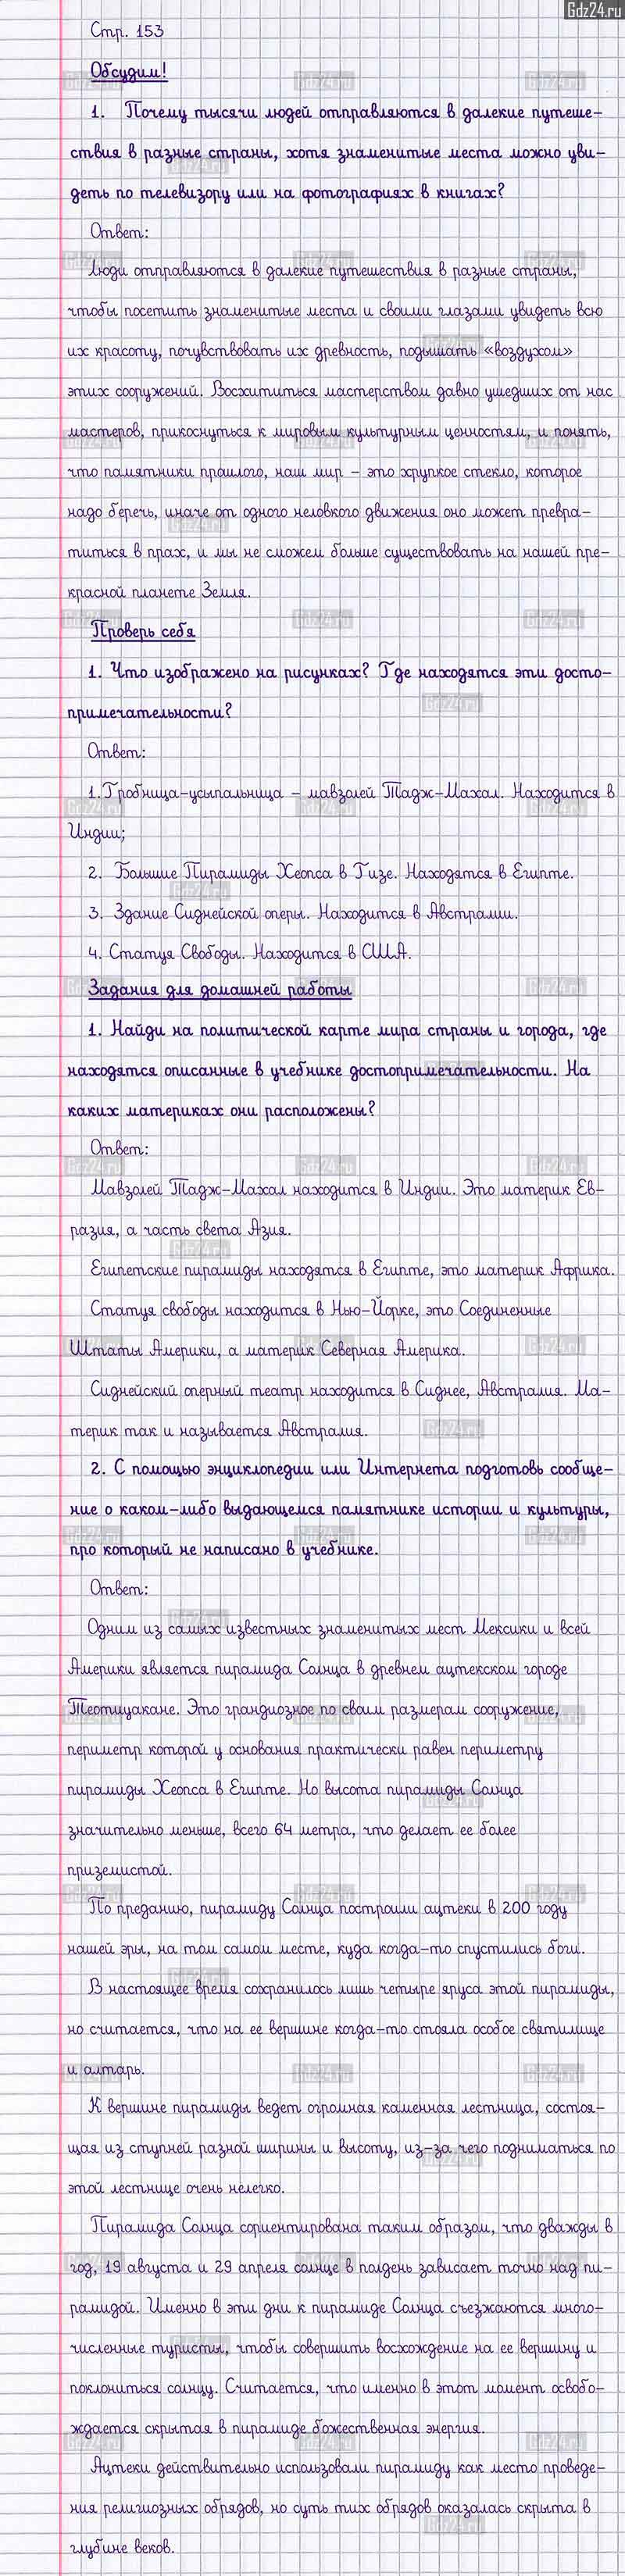 Gdz24.ru
Стр. 153
Обсудим!
1. Почему тысячи людей отправляются в далекие путеше-
ствия в разные страны, хотя знаменитые места можно уви-
деть по телевизору или на фотографиях в книгах?
Ответ:
Люди отправляются в далекие путешествия в разные страны,
чтобы посетить знаменитые места и своими глазами увидеть всю
их красоту, почувствовать их древность, подышать «воздухом»
этих сооружений. Восхититься мастерством давно ушедших от нас
мастеров, прикоснуться к мировым культурным ценностям, и понять,
что памятники прошлого, наш мир – это хрупкое стекло, которое
надо беречь, иначе от одного неловкого движения оно может превра-
титься в прах, и мы не сможем больше существовать на нашей пре-
красной планете Земля.
Проверь себя
1. Что изображено на рисунках? Где находятся эти досто-
примечательности?
Ответ:
1. Гробница-усыпальница – мавзолей Тадж-Махал. Находится в
Индии;
2. Большие Пирамиды Хеопса в Гизе. Находятся в Египте.
3. Здание Сиднейской оперы. Находится в Австралии.
4. Статуя Свободы. Находится в США.
Задания для домашней работы
1. Найди на политической карте мира страны и города, где
находятся описанные в учебнике достопримечательности. На
каких материках они расположены?
Ответ:
Мавзолей Тадж-Махал находится в Индии. Это материк Ев-
разия, а часть света Азия.
Египетские пирамиды находятся в Египте, это материк Африка.
Статуя свободы находится в Нью-Йорке, это Соединенные
Штаты Америки, а материк Северная Америка.
Сиднейский оперный театр находится в Сиднее, Австралия. Ма-
терик так и называется Австралия.
2. С помощью энциклопедии или Интернета подготовь сообще-
ние о каком-либо выдающемся памятнике истории и культуры,
про который не написано в учебнике.
Ответ:
Одним из самых известных знаменитых мест Мексики и всей
Америки является пирамида Солнца в древнем ацтекском городе
Теотиуакане. Это грандиозное по своим размерам сооружение,
периметр которой у основания практически равен периметру
пирамиды Хеопса в Египте. Но высота пирамиды Солнца
значительно меньше, всего 64 метра, что делает ее более
приземистой.
По преданию, пирамиду Солнца построили ацтеки в 200 году
нашей эры, на том самом месте, куда когда-то спустились боги.
В настоящее время сохранилось лишь четыре яруса этой пирамиды,
но считается, что на ее вершине когда-то стояла особое святилище
и алтарь.
К вершине пирамиды ведет огромная каменная лестница, состоя-
щая из ступней разной ширины и высоту, из-за чего подниматься по
этой лестнице очень нелегко.
Пирамида Солнца сориентирована таким образом, что дважды в
год, 19 августа и 29 апреля солнце в полдень зависает точно над пи-
рамидой. Именно в эти дни к пирамиде Солнца съезжаются много-
численные туристы, чтобы совершить восхождение на ее вершину и
поклониться солнцу. Считается, что именно в этот момент освобо-
ждается скрытая в пирамиде божественная энергия.
Ацтеки действительно использовали пирамиду как место проведе-
ния религиозных обрядов, но суть тих обрядов оказалась скрыта в
глубине веков.